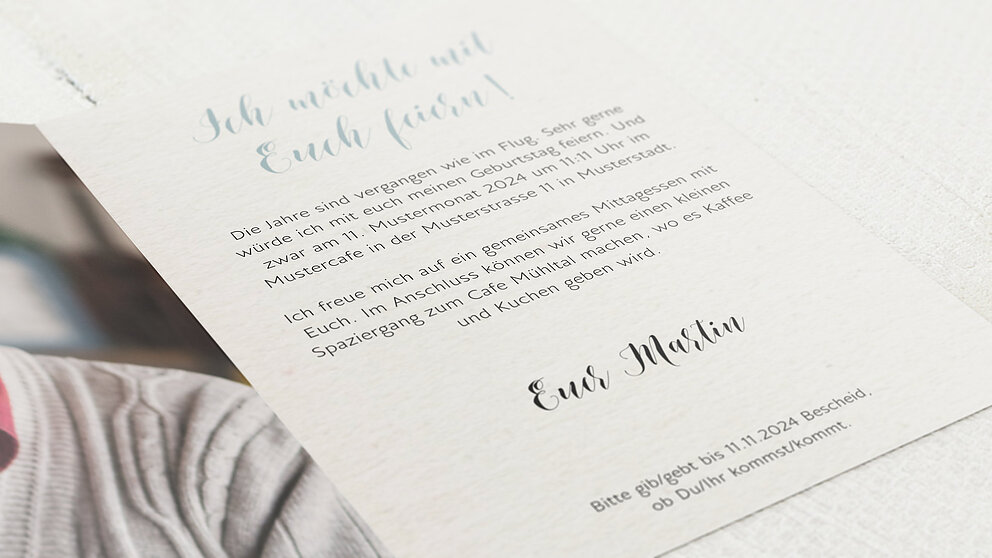 Ich möchte mit
Euch feiern!
Die Jahre sind vergangen wie im Flug. Sehr gerne
würde ich mit euch meinen Geburtstag feiern. Und
zwar am 11. Mustermonat 2024 um 11:11 Uhr im
Mustercafe in der Musterstrasse 11 in Musterstadt.
Ich freue mich auf ein gemeinsames Mittagessen mit
Euch. Im Anschluss können wir gerne einen kleinen
Spaziergang zum Cafe Mühltal machen, wo es Kaffee
und Kuchen geben wird.
Euer Martin
Bitte gib/gebt bis 11.11.2024 Bescheid,
ob Du/Ihr kommst/kommt.